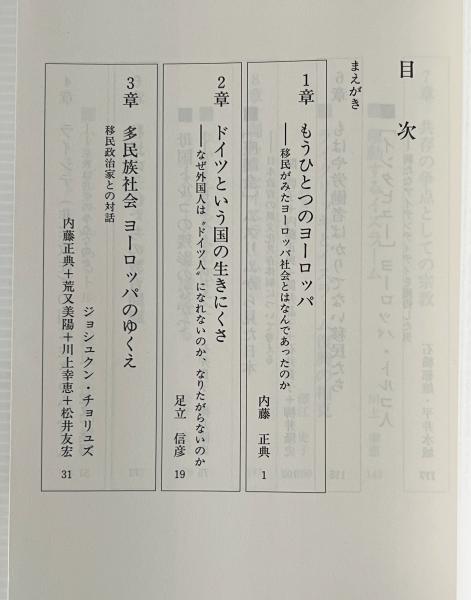 目次
まえがき
1章 もうひとつのヨーロッパ
――移民がみたヨーロッパ社会とはなんであったのか
内藤 正典 1
2章 ドイツという国の生きにくさ
――なぜ外国人は〝ドイツ人〟になれないのか、なりたがらないのか
足立 信彦 19
3章 多民族社会 ヨーロッパのゆくえ
移民政治家との対話
ジョシュクン・チョリュズ
内藤正典+荒又美陽+川上幸恵+松井友宏 31